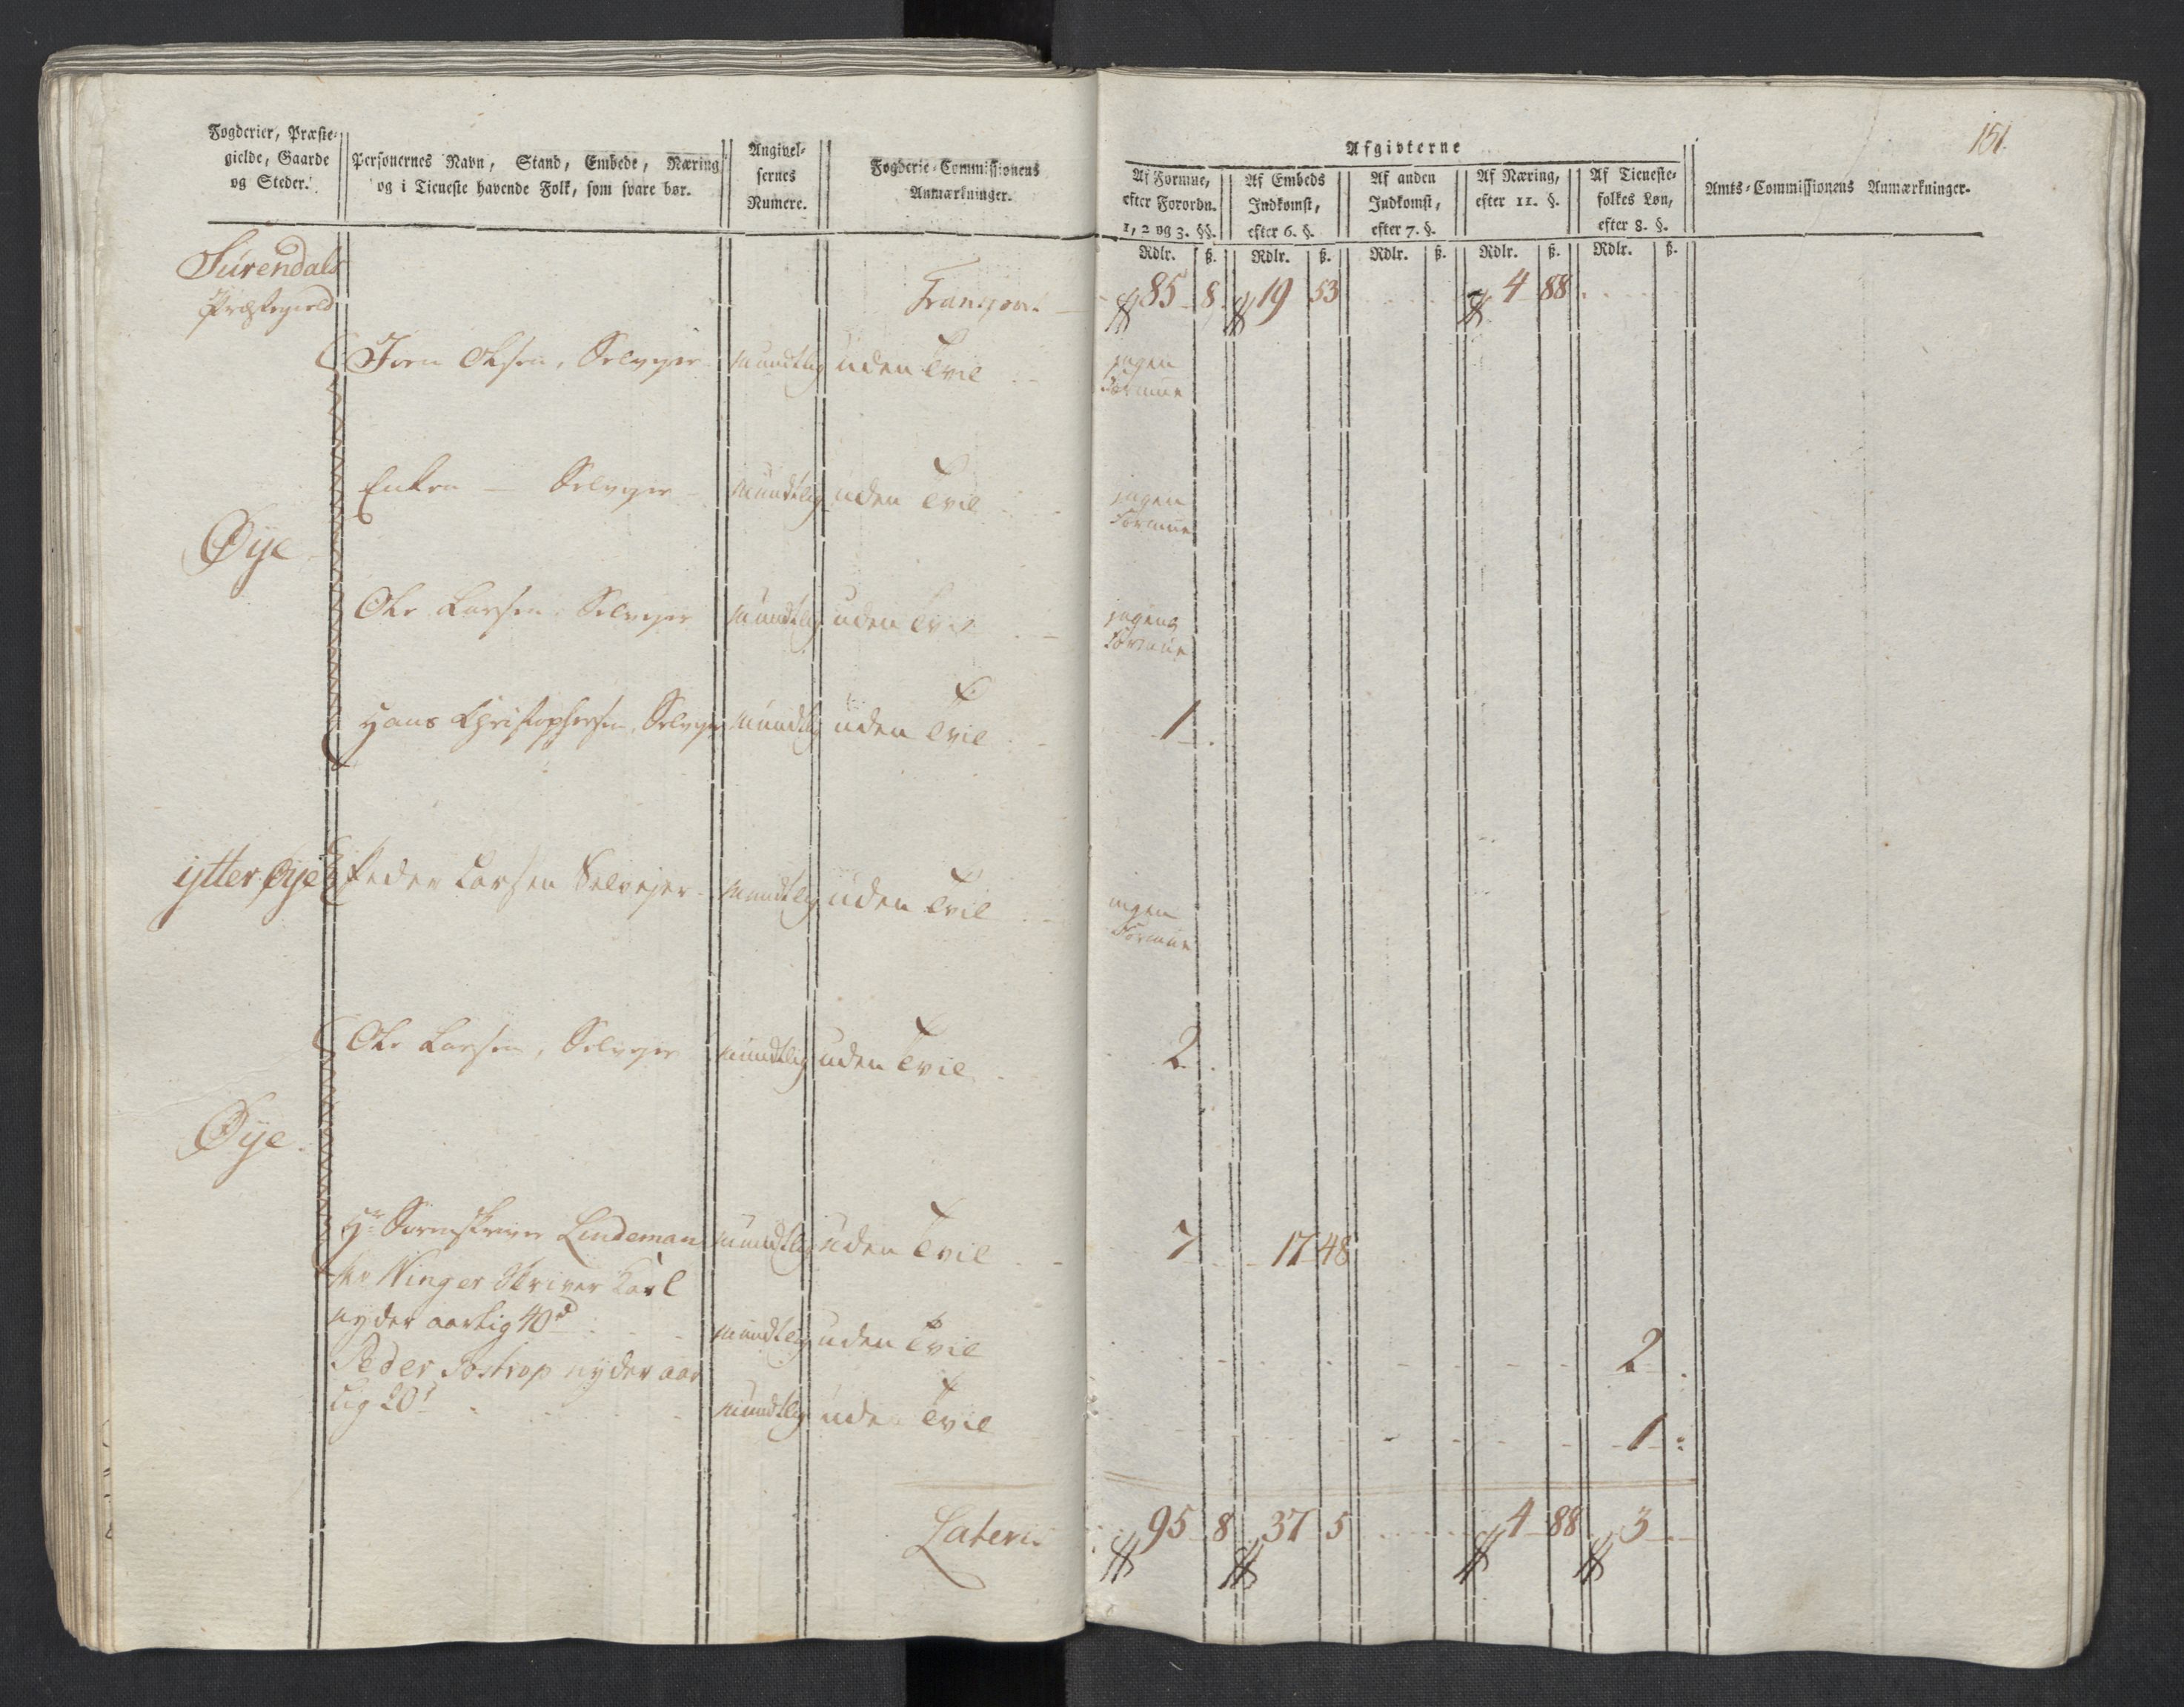 Fogderier, Præste-
gielde, Gaarde
og Steder.
Personernes Navn, Stand, Embede, Næring
og i Tieneste havende Folk, som svare bør.
Angivel-
sernes
Numere.
Fogderie-Commissionens
Anmærkninger.
Afgivterne
151.
Af Formue,
efter Forordn.
1, 2 og 3. §§.
Af Embeds
Indkomst,
efter 6. §.
Af anden
Indkomst,
efter 7. §.
Af Næring,
efter 11. §.
Af Tieneste-
folkes Løn,
efter 8. §.
Amts-Commissionens Anmærkninger.
Rdlr. ß. Rdlr. ß. Rdlr. ß. Rdlr. ß. Rdlr. ß.
Surendals
Præstegield
Transport 85 8 19 53 4 88
Iven Olsen, Selvejer mundtlig uden Tvil ingen
Formue
Enken — Selvejer mundtlig uden Tvil ingen
Formue
Øye
Ole Larsen Selvejer mundtlig uden Tvil ingen
Formue
Hans Christophersen, Selvejer mundtlig uden Tvil 1
ytter Øye Peder Larsen Selvejer mundtlig uden Tvil ingen
Formue
Ole Larsen, Selvejer mundtlig uden Tvil 2
Øye
Hr Sorenskriver Lindeman mundtlig uden Tvil 7 17 48
Winger Skriver Karl
nyder aarlig 40 d mundtlig uden Tvil 2
Peder nyder aar
lig 20 d mundtlig uden Tvil 1
Lateris 95 8 37 5 4 88 3